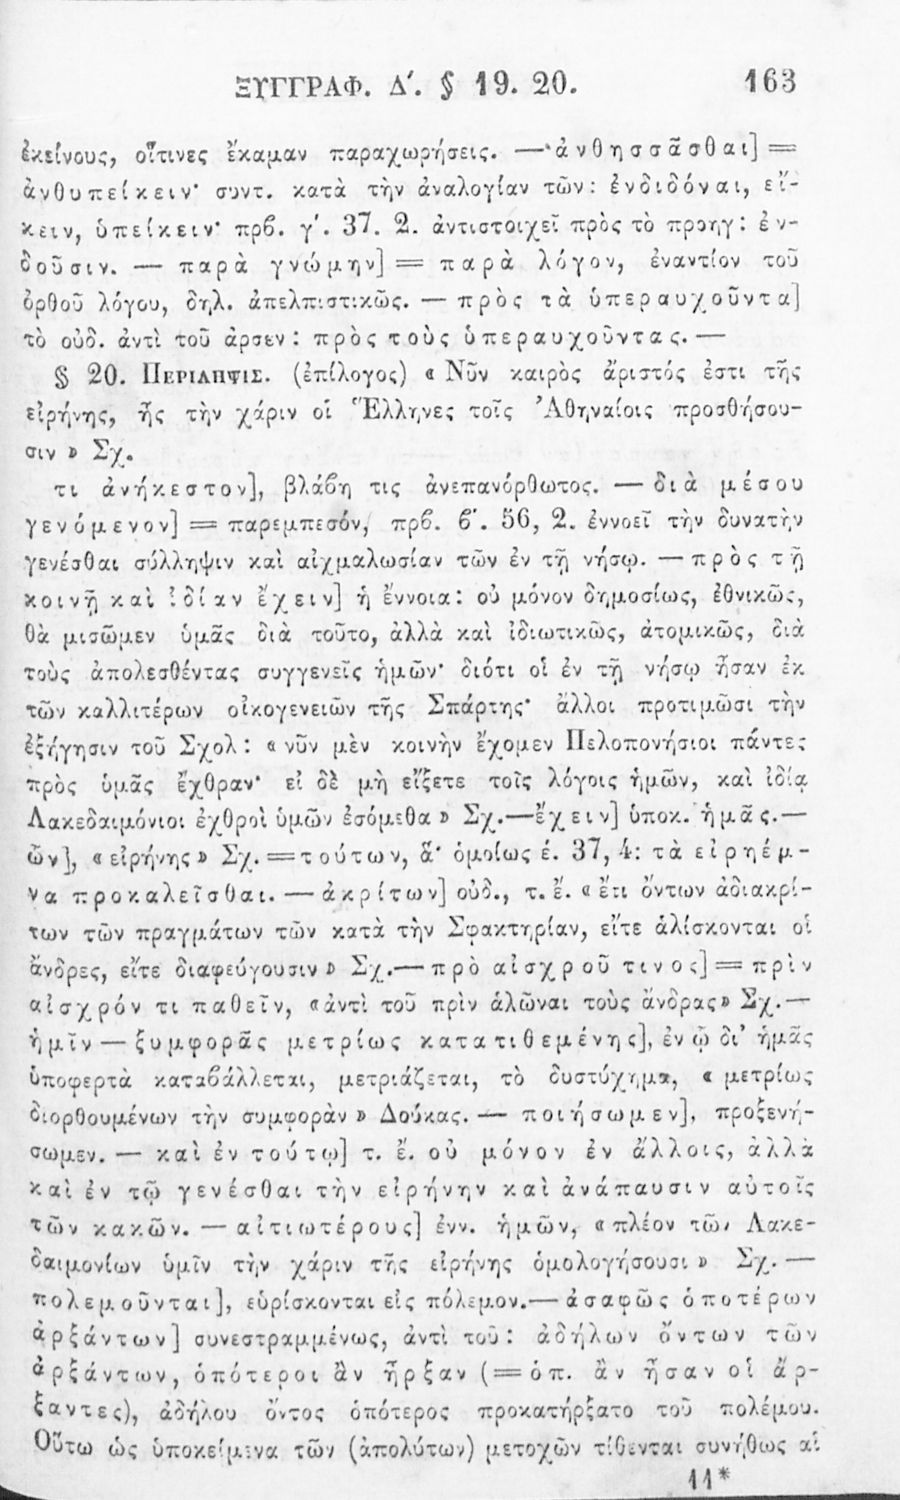 ΞΥΓΓΡΑΦ. Δ΄. § 19. 20. 163
ἐκείνους, οἵτινες ἔκαμαν παραχωρήσεις. —ἀνθησσᾶσθαι] =
ἀνθυπείκειν· συντ. κατὰ τὴν ἀναλογίαν τῶν: ἐνδιδόναι, εἴ-
κειν, ὑπείκειν· πρβ. γ΄. 37. 2. ἀντιστοιχεῖ πρὸς τὸ προηγ: ἐν-
δοῦσιν. — παρὰ γνώμην] = παρὰ λόγον, ἐναντίον τοῦ
ὀρθοῦ λόγου, δηλ. ἀπελπιστικῶς. — πρὸς τὰ ὑπεραυχοῦντα]
τὸ οὐδ. ἀντὶ τοῦ ἀρσεν: πρὸς τοὺς ὑπεραυχοῦντας. —
§ 20. ΠΕΡΙΛΗΨΙΣ. (ἐπίλογος) « Νῦν καιρὸς ἄριστός ἐστι τῆς
εἰρήνης, ἧς τὴν χάριν οἱ Ἕλληνες τοῖς Ἀθηναίοις προσθήσου-
σιν » Σχ.
τι ἀνήκεστον], βλάβη τις ἀνεπανόρθωτος. — διὰ μέσου
γενόμενον] = παρεμπεσόν, πρβ. β΄. 56, 2. ἐννοεῖ τὴν δυνατὴν
γενέσθαι σύλληψιν καὶ αἰχμαλωσίαν τῶν ἐν τῇ νήσῳ. — πρὸς τῇ
κοινῇ καὶ ἰδίαν ἔχειν] ἡ ἔννοια: οὐ μόνον δημοσίως, ἐθνικῶς,
θὰ μισῶμεν ὑμᾶς διὰ τοῦτο, ἀλλὰ καὶ ἰδιωτικῶς, ἀτομικῶς, διὰ
τοὺς ἀπολεσθέντας συγγενεῖς ἡμῶν· διότι οἱ ἐν τῇ νήσῳ ἦσαν ἐκ
τῶν καλλιτέρων οἰκογενειῶν τῆς Σπάρτης· ἄλλοι προτιμῶσι τὴν
ἐξήγησιν τοῦ Σχολ: « νῦν μὲν κοινὴν ἔχομεν Πελοπονήσιοι πάντες
πρὸς ὑμᾶς ἔχθραν· εἰ δὲ μὴ εἴξετε τοῖς λόγοις ἡμῶν, καὶ ἰδίᾳ
Λακεδαιμόνιοι ἐχθροὶ ὑμῶν ἐσόμεθα » Σχ.—ἔχειν] ὑποκ. ἡμᾶς.—
ὧν], « εἰρήνης » Σχ.=τούτων, ἅ· ὁμοίως έ. 37, 4: τὰ εἰρημέ-
να προκαλεῖσθαι. — ἀκρίτων] οὐδ., τ. ἔ. « ἔτι ὄντων ἀδιακρί-
των τῶν πραγμάτων τῶν κατὰ τὴν Σφακτηρίαν, εἴτε ἁλίσκονται οἱ
ἄνδρες, εἴτε διαφεύγουσιν » Σχ.— πρὸ αἰσχροῦ τινος] = πρὶν
αἰσχρόν τι παθεῖν, «ἀντὶ τοῦ πρὶν ἁλῶναι τοὺς ἄνδρας» Σχ.—
ἡμῖν — ξυμφορᾶς μετρίως κατατιθεμένης], ἐν ᾧ δι' ἡμᾶς
ὑποφερτὰ καταβάλλεται, μετριάζεται, τὸ δυστύχημα, « μετρίως
διορθουμένων τὴν συμφορὰν » Δούκας. — ποιήσωμεν], προξενή-
σωμεν. — καὶ ἐν τούτῳ] τ. ἔ. οὐ μόνον ἐν ἄλλοις, ἀλλὰ
καὶ ἐν τῷ γενέσθαι τὴν εἰρήνην καὶ ἀνάπαυσιν αὐτοῖς
τῶν κακῶν. — αἰτιωτέρους] ἐνν. ἡμῶν, « πλέον τῶν Λακε-
δαιμονίων ὑμῖν τὴν χάριν τῆς εἰρήνης ὁμολογήσουσι » Σχ. —
πολεμοῦνται], εὑρίσκονται εἰς πόλεμον.— ἀσαφῶς ὁποτέρων
ἀρξάντων] συνεστραμμένως, ἀντὶ τοῦ: ἀδήλων ὄντων τῶν
ἀρξάντων, ὁπότεροι ἂν ἦρξαν (= ὁπ. ἂν ἦσαν οἱ ἄρ-
ξαντες), ἀδήλου ὄντος ὁπότερος προκατήρξατο τοῦ πολέμου.
Οὕτω ὡς ὑποκείμενα τῶν (ἀπολύτων) μετοχῶν τίθενται συνήθως αἱ
11*